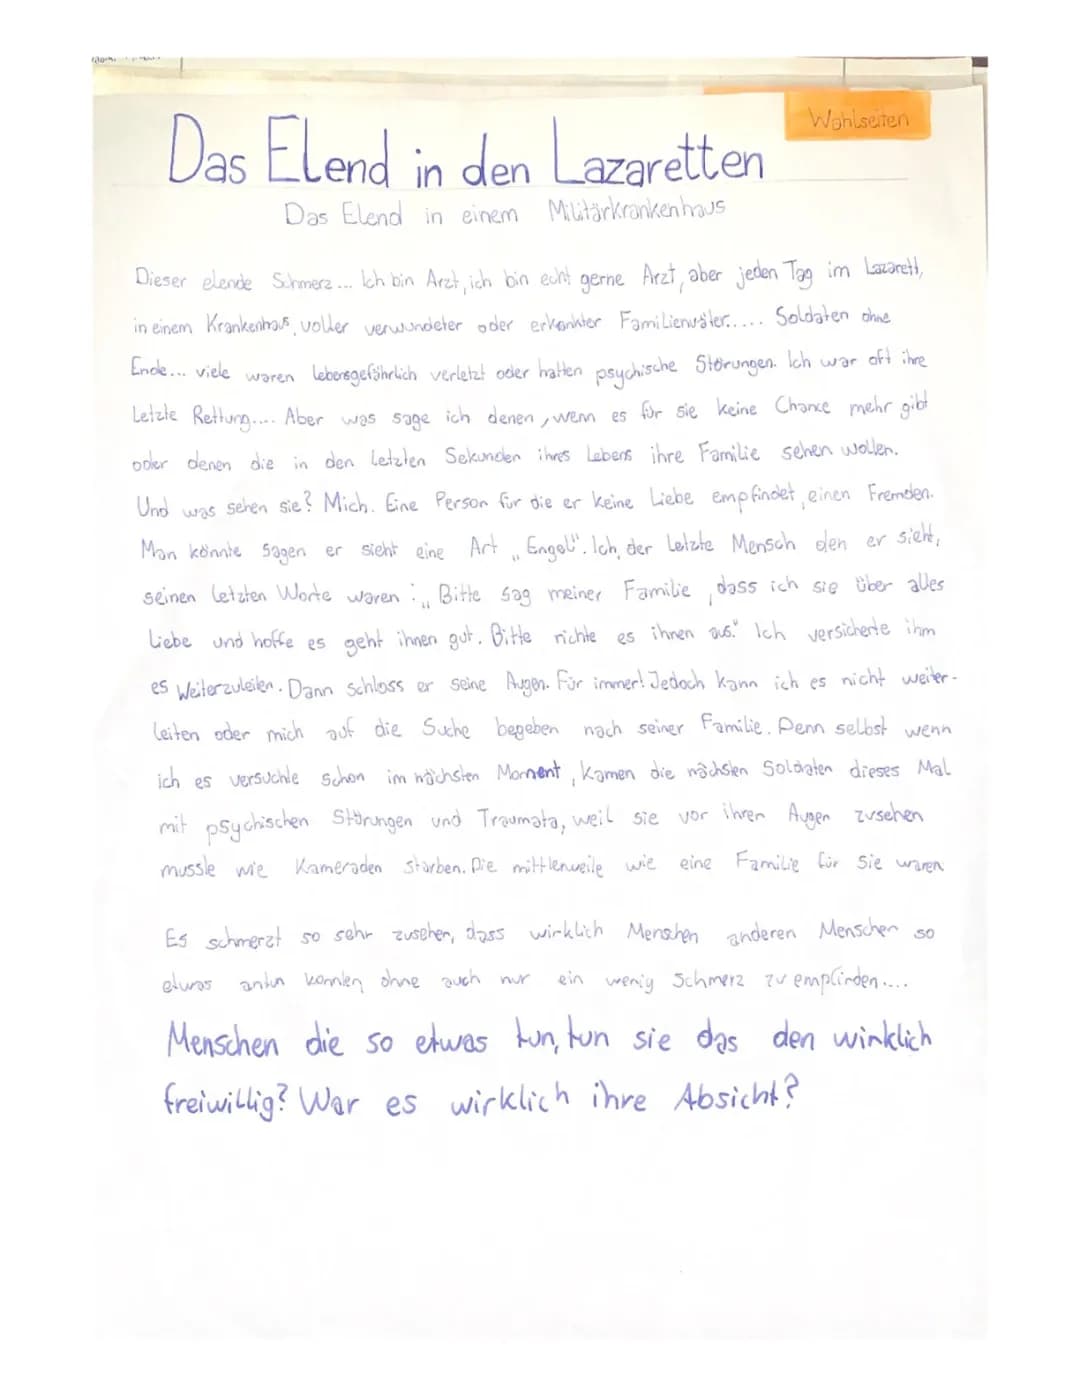 Wahlseiten
Das Elend in den Lazaretten
Das Elend in einem Militärkrankenhaus
Dieser elende Schmerz... Ich bin Arzt, ich bin echt gerne Arzt, aber jeden Tag im Lazarett,
in einem Krankenhaus, voller verwundeter oder erkrankter Familienväter..... Soldaten ohne
Ende... viele waren lebensgefährlich verletzt oder hatten psychische Störungen. Ich war oft ihre
Letzte Rettung.... Aber was sage ich denen, wenn es für sie keine Chance mehr gibt
oder denen die in den letzten Sekunden ihres Lebens ihre Familie sehen wollen.
Und was sehen sie? Mich. Eine Person für die er keine Liebe empfindet, einen Fremden.
Man könnte sagen er sieht eine Art „Engel". Ich, der letzte Mensch den er sieht,
seinen letzten Worte waren: „Bitte sag meiner Familie, dass ich sie über alles
Liebe und hoffe es geht ihnen gut. Bitte richte es ihnen aus." Ich versicherte ihm
es Weiterzuleiten. Dann schloss er seine Augen. Für immer! Jedoch kann ich es nicht weiter-
leiten oder mich auf die Suche begeben nach seiner Familie. Denn selbst wenn
ich es versuchte schon im nächsten Moment, kamen die nächsten Soldaten dieses Mal
mit psychischen Störungen und Traumata, weil sie vor ihren Augen zusehen
musste wie Kameraden starben. Die mittlerweile wie eine Familie für Sie waren
Es schmerzt so sehr zusehen, dass wirklich Menschen anderen Menschen so
etwas antun konnten ohne auch nur ein wenig Schmerz zu empfinden....
Menschen die so etwas tun, tun sie das den wirklich
freiwillig? War es wirklich ihre Absicht?